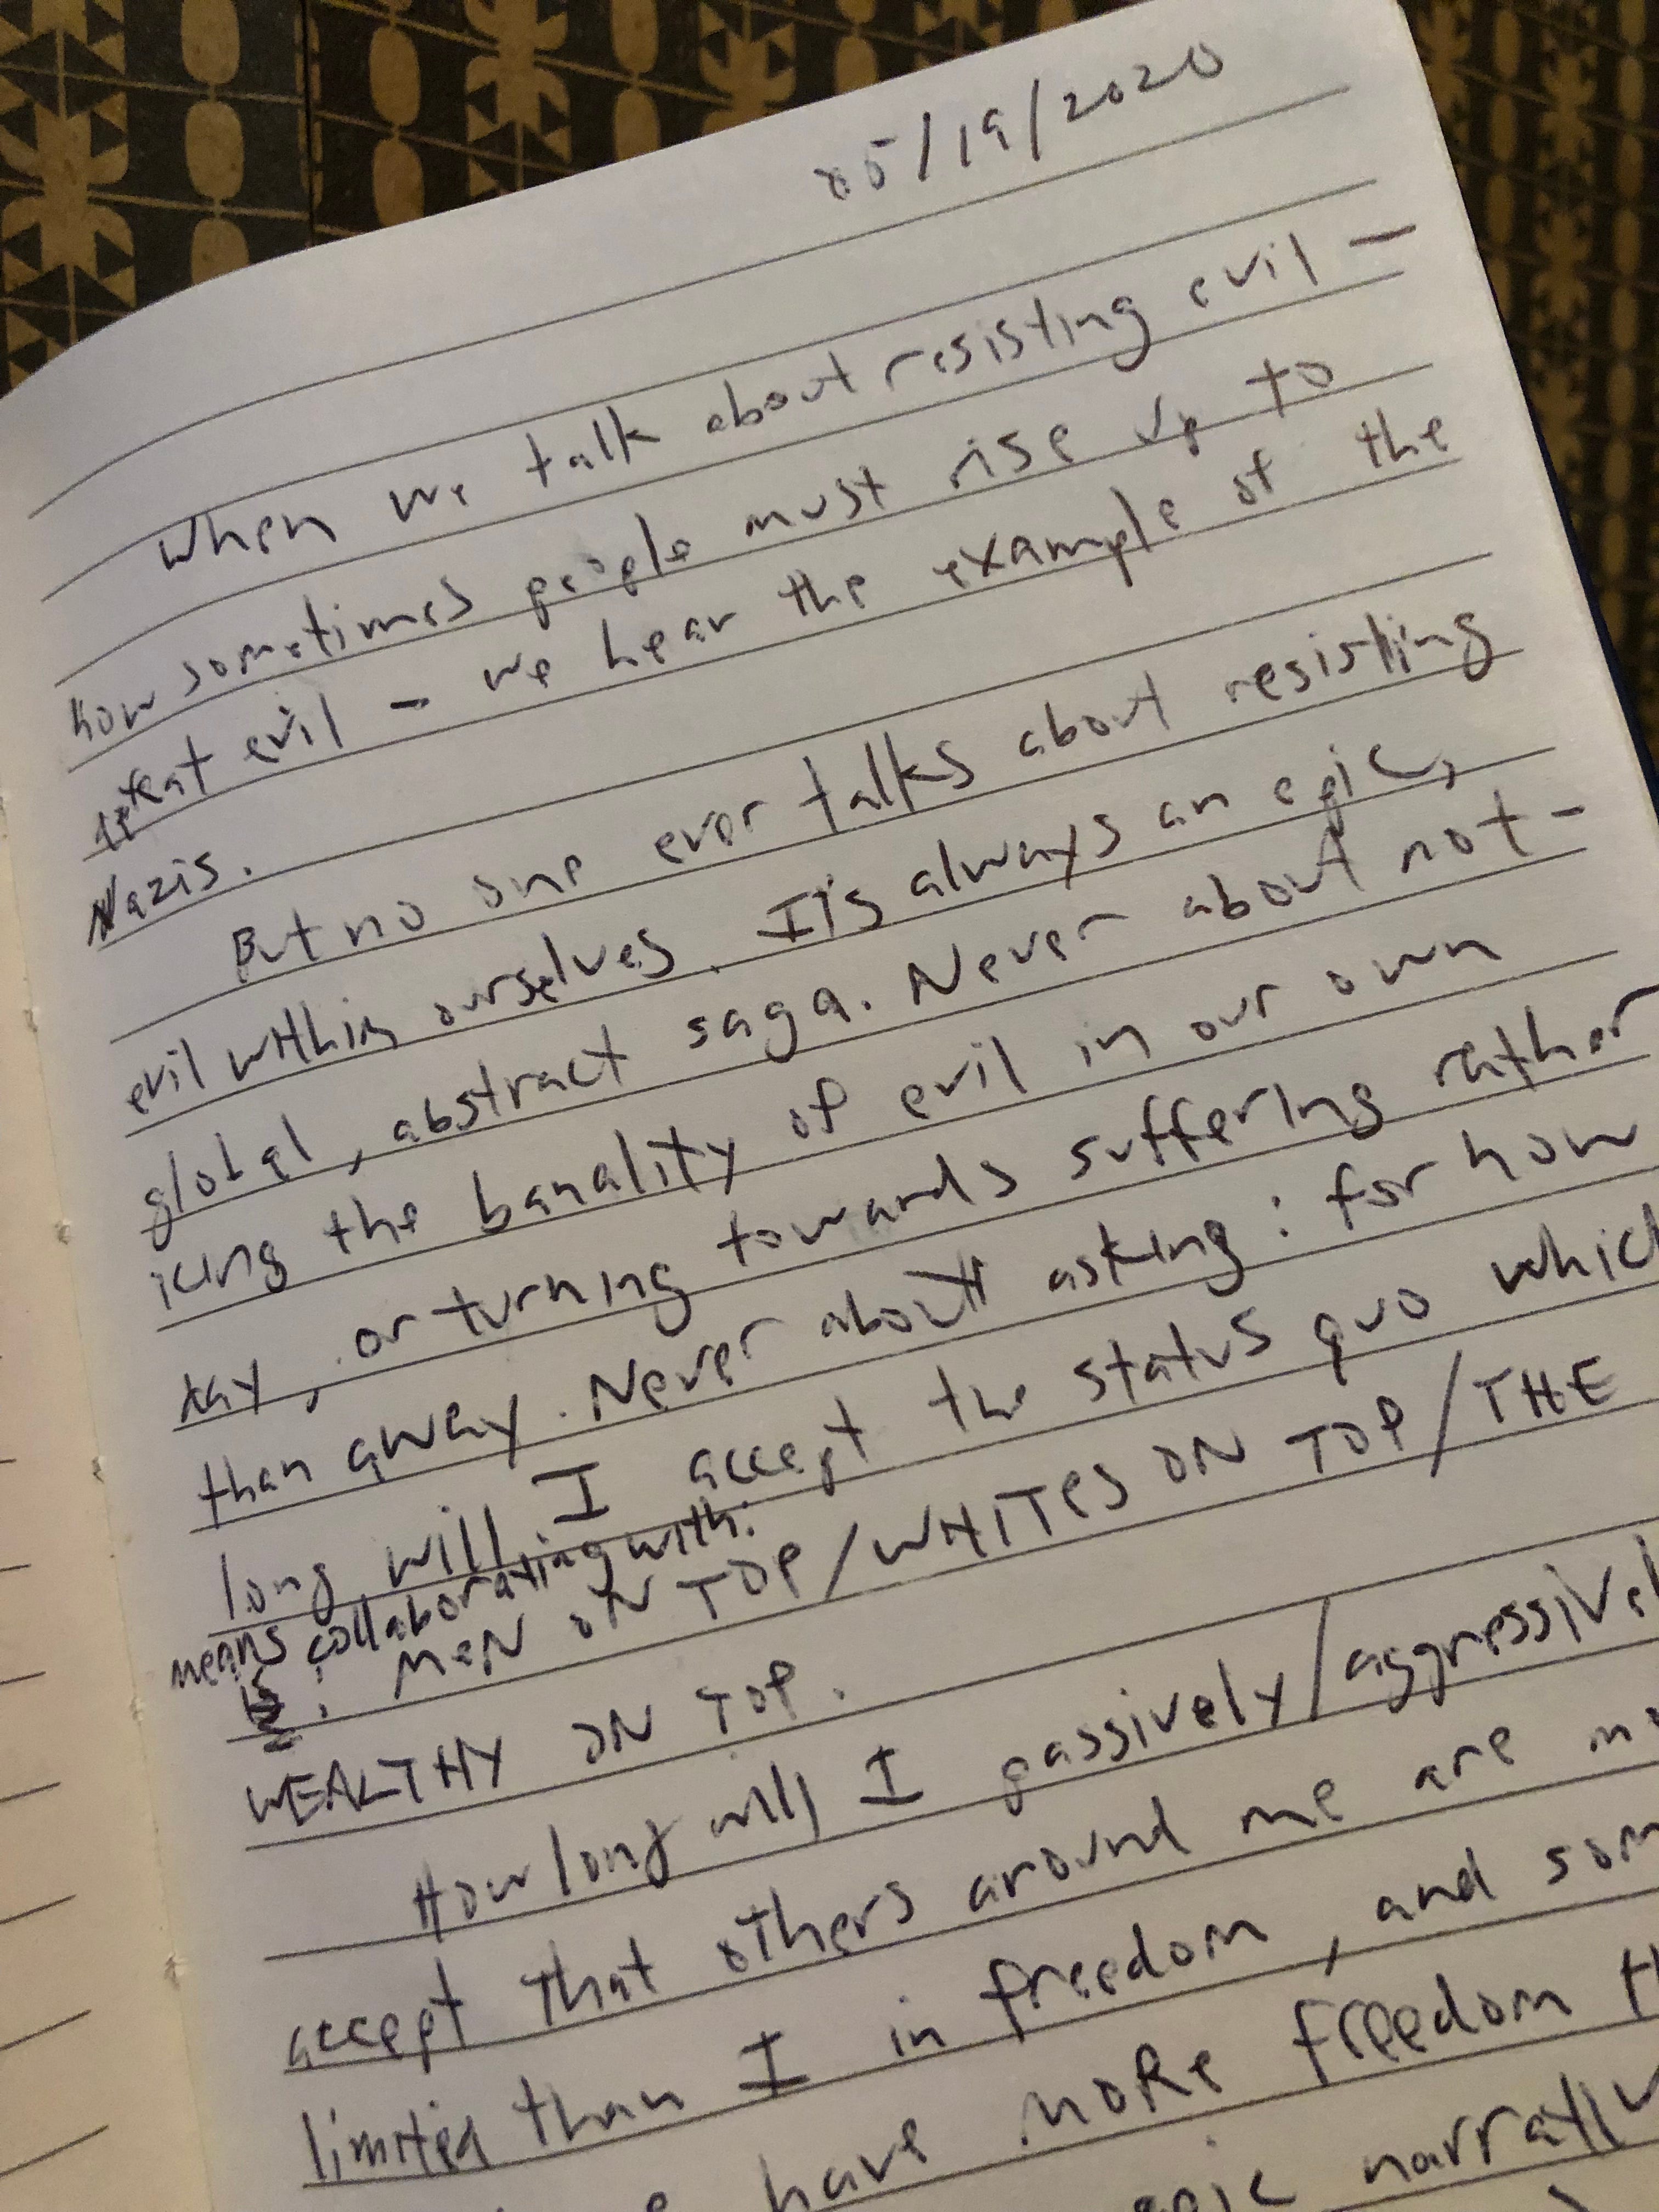 05/19/2020
When we talk about resisting evil –
how sometimes people must rise up to
defeat evil – we hear the example of the
Nazis.
But no one ever talks about resisting
evil within ourselves. It's always an epic,
global, abstract saga. Never about not-
icing the banality of evil in our own
day, or turning towards suffering rather
than away. Never about asking: for how
long will I accept the status quo which
means collaborating with:
MEN ON TOP/WHITES ON TOP/THE
WEALTHY ON TOP.
How long will I passively/aggressivel
accept that others around me are mo
limited than I in freedom, and som
have MORE freedom th
epic narrativ